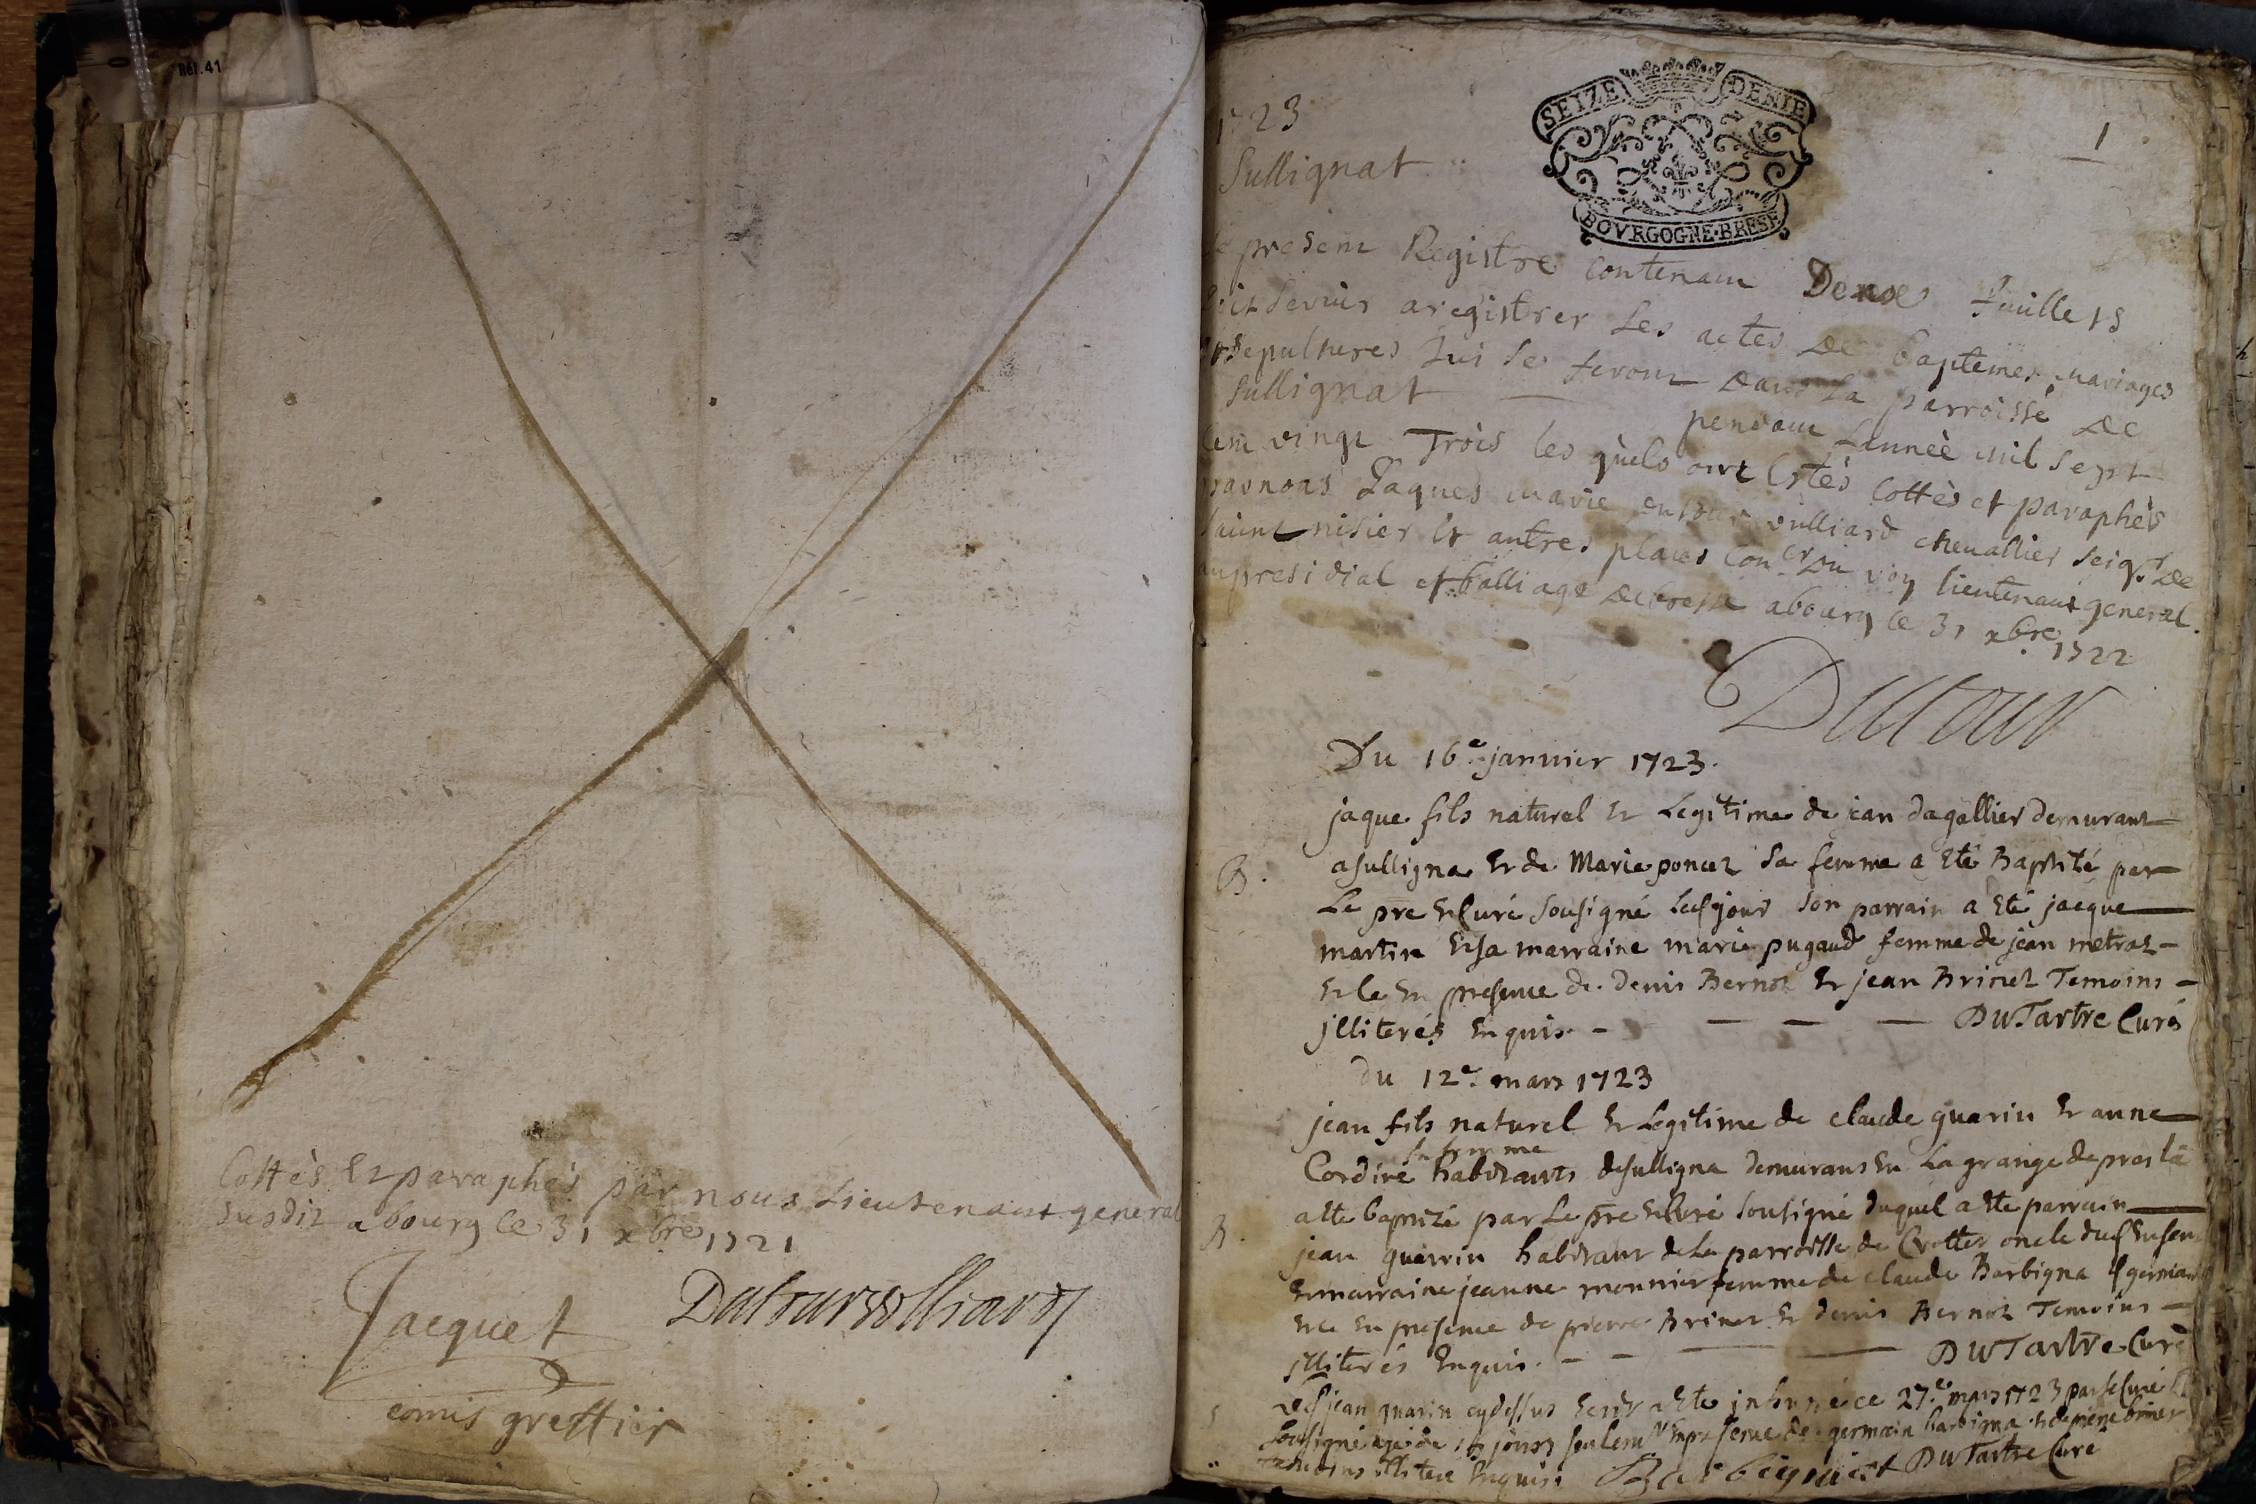 Réf.41
Cottès Et paraphès par nous Lieutenant general
susdit a bourg le 31 xbre 1721
Jacquet
Dutour vulliard
comis greffier
1723
SEIZE DENIE
BOVRGOGNE·BRESE
1
Sullignat
present Registre contenant Deuxe feuillets
servir a registrer Les actes De baptemes mariages
sepultures qui se feront Dans La parroisse De
Sullignat pendant L'année mil sept
cent vingt Trois les quels ont Estés Cottès et paraphès
par nous Jaques marie dutour vulliard chevallier seigr De
saint nisier et autres places Coner Du roy lieutenant general
au presidial et balliage De bresse a bourg le 31 xbre 1722
Dutour
Du 16e janvier 1723.
jaque fils naturel et Legitime de jean dagallier demurant
B.
a sulligna et de Marie poncet sa femme a Eté Baptisé par
Le pre et Curé sousigné led jour son parrain a Eté jacque
martin et sa marraine marie pugaud femme de jean metraz
et le en presence de denis Bernoz et jean Brinet Temoins
jlliterés Enquis - DuTartre Curé
du 12e mars 1723
jean fils naturel et Legitime de claude guarin et anne
sa femme
Cordiré habitants de sulligna demurans en La grange de
a Eté baptizé par Le pre et Curé sousigné duquel a Eté parrain
B.
jean guarrin habitant de La parroisse de Crottet oncle dud Enfen
et marraine jeanne monnier femme de claude Barbigna
et ce En presence de pierre Brinet et denis Bernoz Temoins
jlliterés Enquis. DuTartre Curé
jean guarin cydessus Ecrit a Eté inhumé ce 27e mars 1723 par le Curé
sousigné agé de jours seulemt En presence de germain barbigna et de pierre brinet
Temoins illiteré Enquis Barbigniat DuTartre Curé